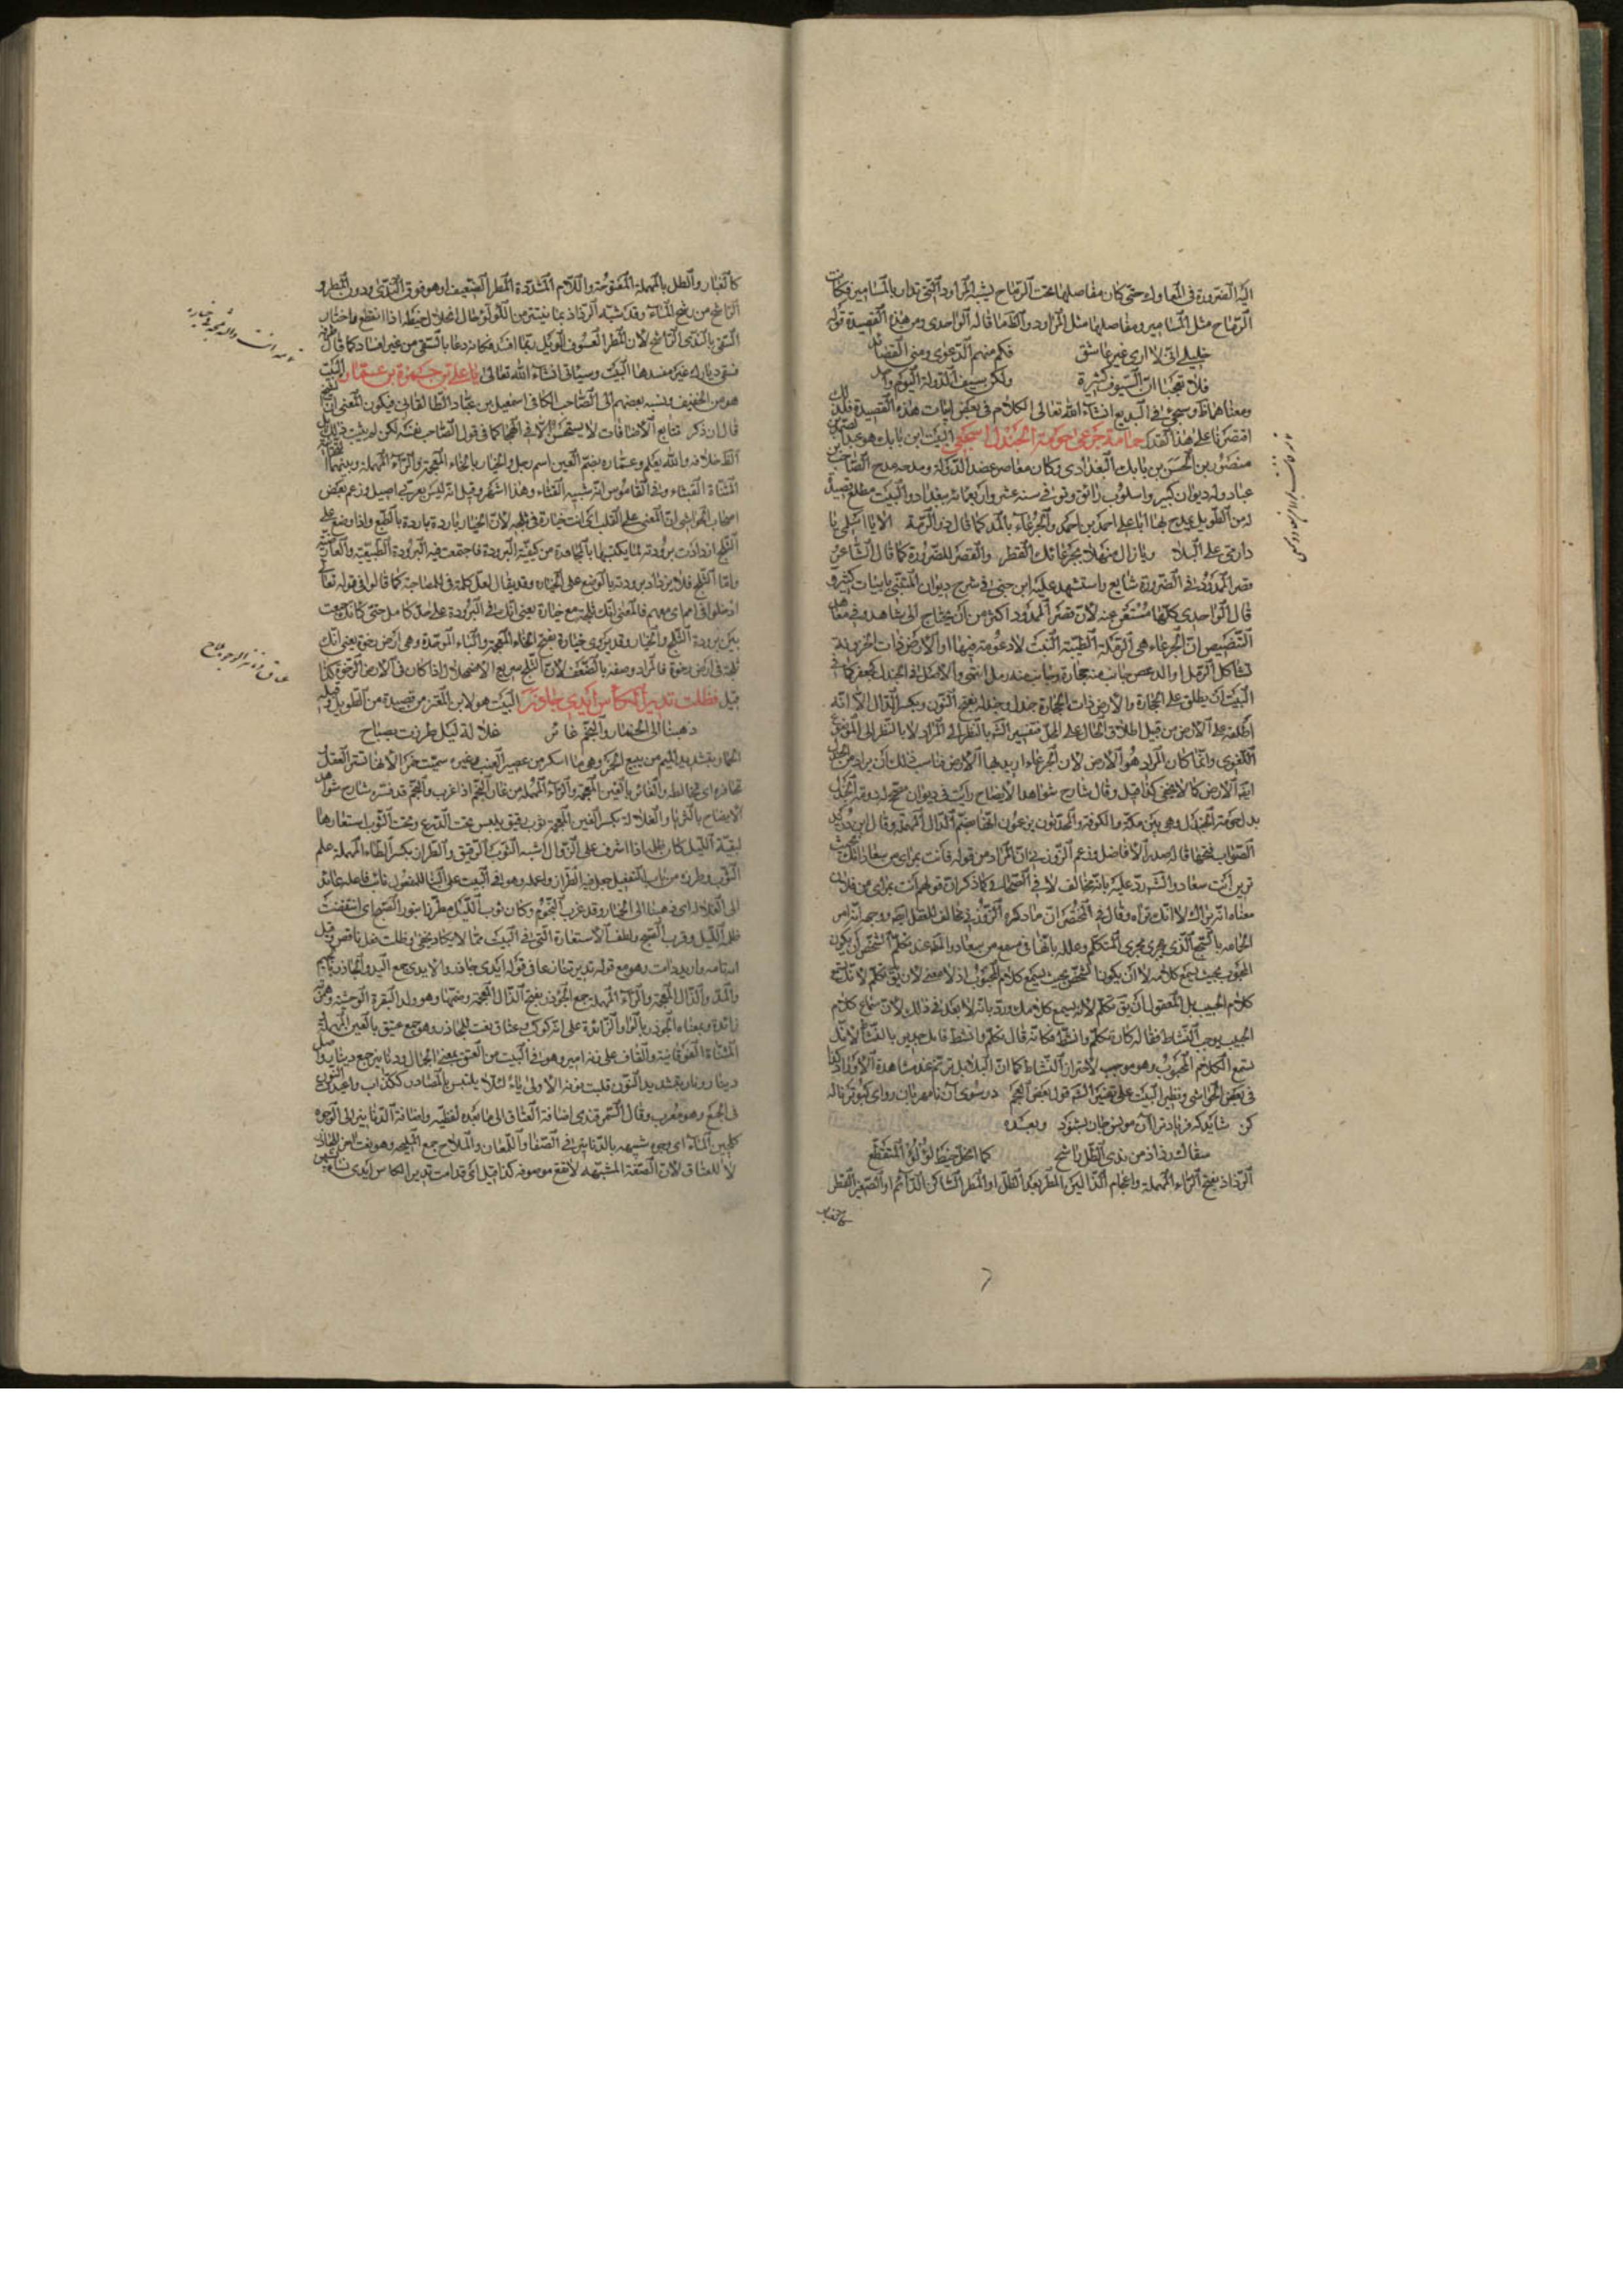 اليه الضرورة في المعاول حتى كان مفاصلها تحت الرماح يشبه المراود التي تدار بالمسامير فكانت
الرماح مثل المسامير ومفاصلها مثل المراود والظما قاله الواحدي ومن هذه القصيدة قوله
خليلي اني لا ارى غير شاعر فكم منهم الدعوى ومني القصائد
فلا تعجبا ان السيوف كثيرة ولكن سيف الدولة اليوم واحد
ومعناهما وسيجئ في البديع انشاء الله تعالى الكلام في بعض ابيات هذه القصيدة فلذلك
اقتصرنا على هذا القدر حمامة جرعى حومة الجندل اسجعي البيت لابن بابك هو عبد الصمد بن
منصور بن الحسن بن بابك البغدادي وكان معاصر عضد الدولة ومدحه مدح الصاحب بن
عباد وله ديوان كبير واسلوب رائق وتوفي في سنة عشر واربعمائة ببغداد والبيت مطلع قصيدة
له من الطويل يمدح بها ابا علي احمد بن احمد والجرعاء بالمد كما قال ذو الرمة الا يا اسلمي يا
دار مي على البلا ولا زال منهلا بجرعائك القطر والقصر للضرورة كما قال الشاعر
قصر الممدود في الضرورة شايع واستشهد عليه ابن جني في شرح ديوان المتنبي بابيات كثيرة
قال الواحدي وكلها مستغنى عنه لان قصر الممدود اكثر من ان يحتاج الى شاهد وفي معاهد
التنصيص ان الجرعاء هي الرملة الطيبة النبت لا وعوثة فيها او الارض ذات الحزونة
تشاكل الرمل او الدعص جانب منه حجارة وجانب منه رمل انتهى والاصل في الجندل كجعفر كما في
البيت ان يطلق على الحجارة والارض ذات الحجارة جندل وجندلة بفتح النون وبكسر الدال الا انه
اطلقه على الارض من قبيل اطلاق الحال على المحل فتفسير الشر بالنظر الى المراد لا بالنظر الى الموضوع
اللغوي وانما كان المراد هو الارض لان الجرعاء اريد بها الارض فناسب ذلك ان يراد من الجندل
ايضا الارض كما لا يخفى كذا قيل وقال شارح شواهد الايضاح رايت في ديوان مصحح له دومة الجندل
بدل حومة الجندل وهي بين مكة والكوفة والمحدثون يزعمون انها بضم الدال المهملة وقال ابن دريد
الصواب فتحها قاله صدر الافاضل وزعم الزوزني ان المراد من قوله فانت بمرأى من سعاد انك بحيث
ترين انت سعاد والشر رد عليه بانه مخالف لما في الصحاح وكما ذكر ان قولهم انت بمرأى من فلان
معناه انه يراك لا انك تراه وقال في المختصر ان ما ذكره الزوزني مخالف للعقل ايضا ووجهه انه امر
الحمامة بالسجع الذي يجري مجرى التكلم وعلله بانها في مسمع من سعاد والملائم عند تكلم الشخص ان يكون
المحبوب بحيث يسمع كلامه لا ان يكون الشخص بحيث يسمع كلام المحبوب اذ لا معنى لان يق تكلم لانك تسمع
كلام الحبيب بل المعقول ان يق تكلم لانه يسمع كلامك ورد بانه لا بعد في ذلك لان سماع كلام
الحبيب يوجب النشاط فقال له كان تكلم وانشط فكانه قال تكلم وانشط فانك جدير بالنشاط لانك
تسمع الكلام المحبوب وهو موجب لاهتزاز النشاط كما ان البلابل ترنم عند مشاهدة الاوراد كذا
في بعض الحواشي ونظير البيت على تفسير الشر قول بعض العجم در سوى آن نامهربان رو اى كبوتر ناله
كن شايد كه فرياد ترا آن مونس جان بشنود وبعده
سقاك رذاذ من ندى الطل راشح كما انحل خيط لؤلؤ المتقطع
الرذاذ بفتح الراء المهملة واعجام الذالين المطر بعد الطل او المطر الساكن الدائم او الصغير القطر
كالغبار
كالغبار والطل بالمهملة المفتوحة واللام المشددة المطر الضعيف او هو فوق الندى ودون المطر و
الراشح من رشح الماء وقد شبه الرذاذ بما ينتثر من اللؤلؤ حال انحلال خيطه اذا انقطع واختار
السقي بالندى الراشح لان المطر العسوف الوبيل ربما افسد فكانه دعا بالسقي من غير افساد كما قال طرفة
فسقى ديارك غير مفسدها البيت وسياتي انشاء الله تعالى يا علي بن حمزة بن عمارة البيت
هو من الخفيف ونسبه بعضهم الى الصاحب الكافي اسمعيل بن عباد الطالقاني فيكون المعنى ان الشيخ
قال ان ذكر تتابع الاضافات لا يستحسن الا في الهجا كما في قول الصاحب نفسه لكن لم يثبت ذلك بل
الظ خلافه والله يعلم وعمارة بضم العين اسم رجل والخيار بالخاء المعجمة والراء المهملة وبينهما
المثناة القثاء وفي القاموس انه شبيه القثاء وهذا اشهر وقيل انه ليس بعربي اصيل وزعم بعض
اصحاب الحواشي ان المعنى على القلب اي انت خيارة في ثلجة لان الخيار باردة باردة بالطبع واذا وضع على
الثلج ازدادت برودته لما يكتسبها بالمجاورة من كيفية البرودة فاجتمعت فيه البرودة الطبيعية والعارضية
واما الثلج فلا يزداد برودته بالوضع على الخيار وقد يقال لعل كلمة في للمصاحبة كما قالوا في قوله تعالى
ادخلوا في امم اي معهم فالمعنى انك ثلجة مع خيارة يعني انك في البرودة على حد كامل حتى كانك جمعت
بين برودة الثلج والخيار وقد يروى خبارة بفتح الخاء المعجمة والباء الموحدة وهي ارض رخوة يعني انك
ثلجة في ارض رخوة فالمراد وصفه بالضعف لان الثلج سريع الاضمحلال اذا كان في الارض الرخوة كذا
قيل فظلت تدير الكاس ايدي جاذر البيت هو لابن المعتز من قصيدة من الطويل وقبله
ذهبنا الى الخمار والنجم غائر غلالة ليل طرزت بصباح
الخمار بتشديد الميم من يبيع الخمر وهي ما اسكر من عصير العنب وغيره سميت خمرا لانها تستر العقل
تخامره اي تخالطه والغائر بالغين المعجمة والراء المهملة من غار النجم اذا غرب والنجم قد فسره شارح شواهد
الايضاح بالثريا والغلالة بكسر الغين المعجمة ثوب رقيق يلبس تحت الدرع وتحت الثوب استعارها
لبقية الليل
الثوب وطرزت من باب التفعيل
الى الغلالة اي ذهبنا الى الخمار وقد غرب النجوم وكان ثوب الليل مطرزا بنور الصبح
ظلمة الليل وقرب الصبح ولطف الاستعارة التي في البيت مما لا يكاد يخفى وظلت فعل ناقص وقيل
انه تامة واريد دامت وهو مع قوله تدير تنازعا في قوله ايدي جاذر والايدي جمع اليد والجاذر بالجيم
والمد والذال المعجمة والراء المهملة جمع الجوذر بفتح الذال المعجمة وضمها وهو ولد البقرة الوحشية وهمزته
زائدة وبمعناه الجوذر بالواو الزائدة على انه كوكب عتاق نعت للجاذر وهو جمع عتيق بالعين المهملة
المثناة الفوقانية والقاف على زنة امير وهو في البيت من العتق بمعنى الجمال ودنانير جمع دينار واصل
دينار دنار بتشديد النون قلبت نونه الاولى ياء لئلا يلتبس بالمصادر ككذاب واعيدت النون
في الجمع وهو معرب وقال السمرقندي اضافة العتاق الى ما بعده لفظية واضافة الدنانير الى الوجوه
كلجين الماء اي وجوه شبيهه بالدنانير في الصفا واللمعان والملاح جمع المليحة وهو نعت اخر للجاذر
لا للعتاق لان الصفة المشبهة لا تقع موصوفة كذا قيل اي قد دامت تدير الكاس ايدي نساء